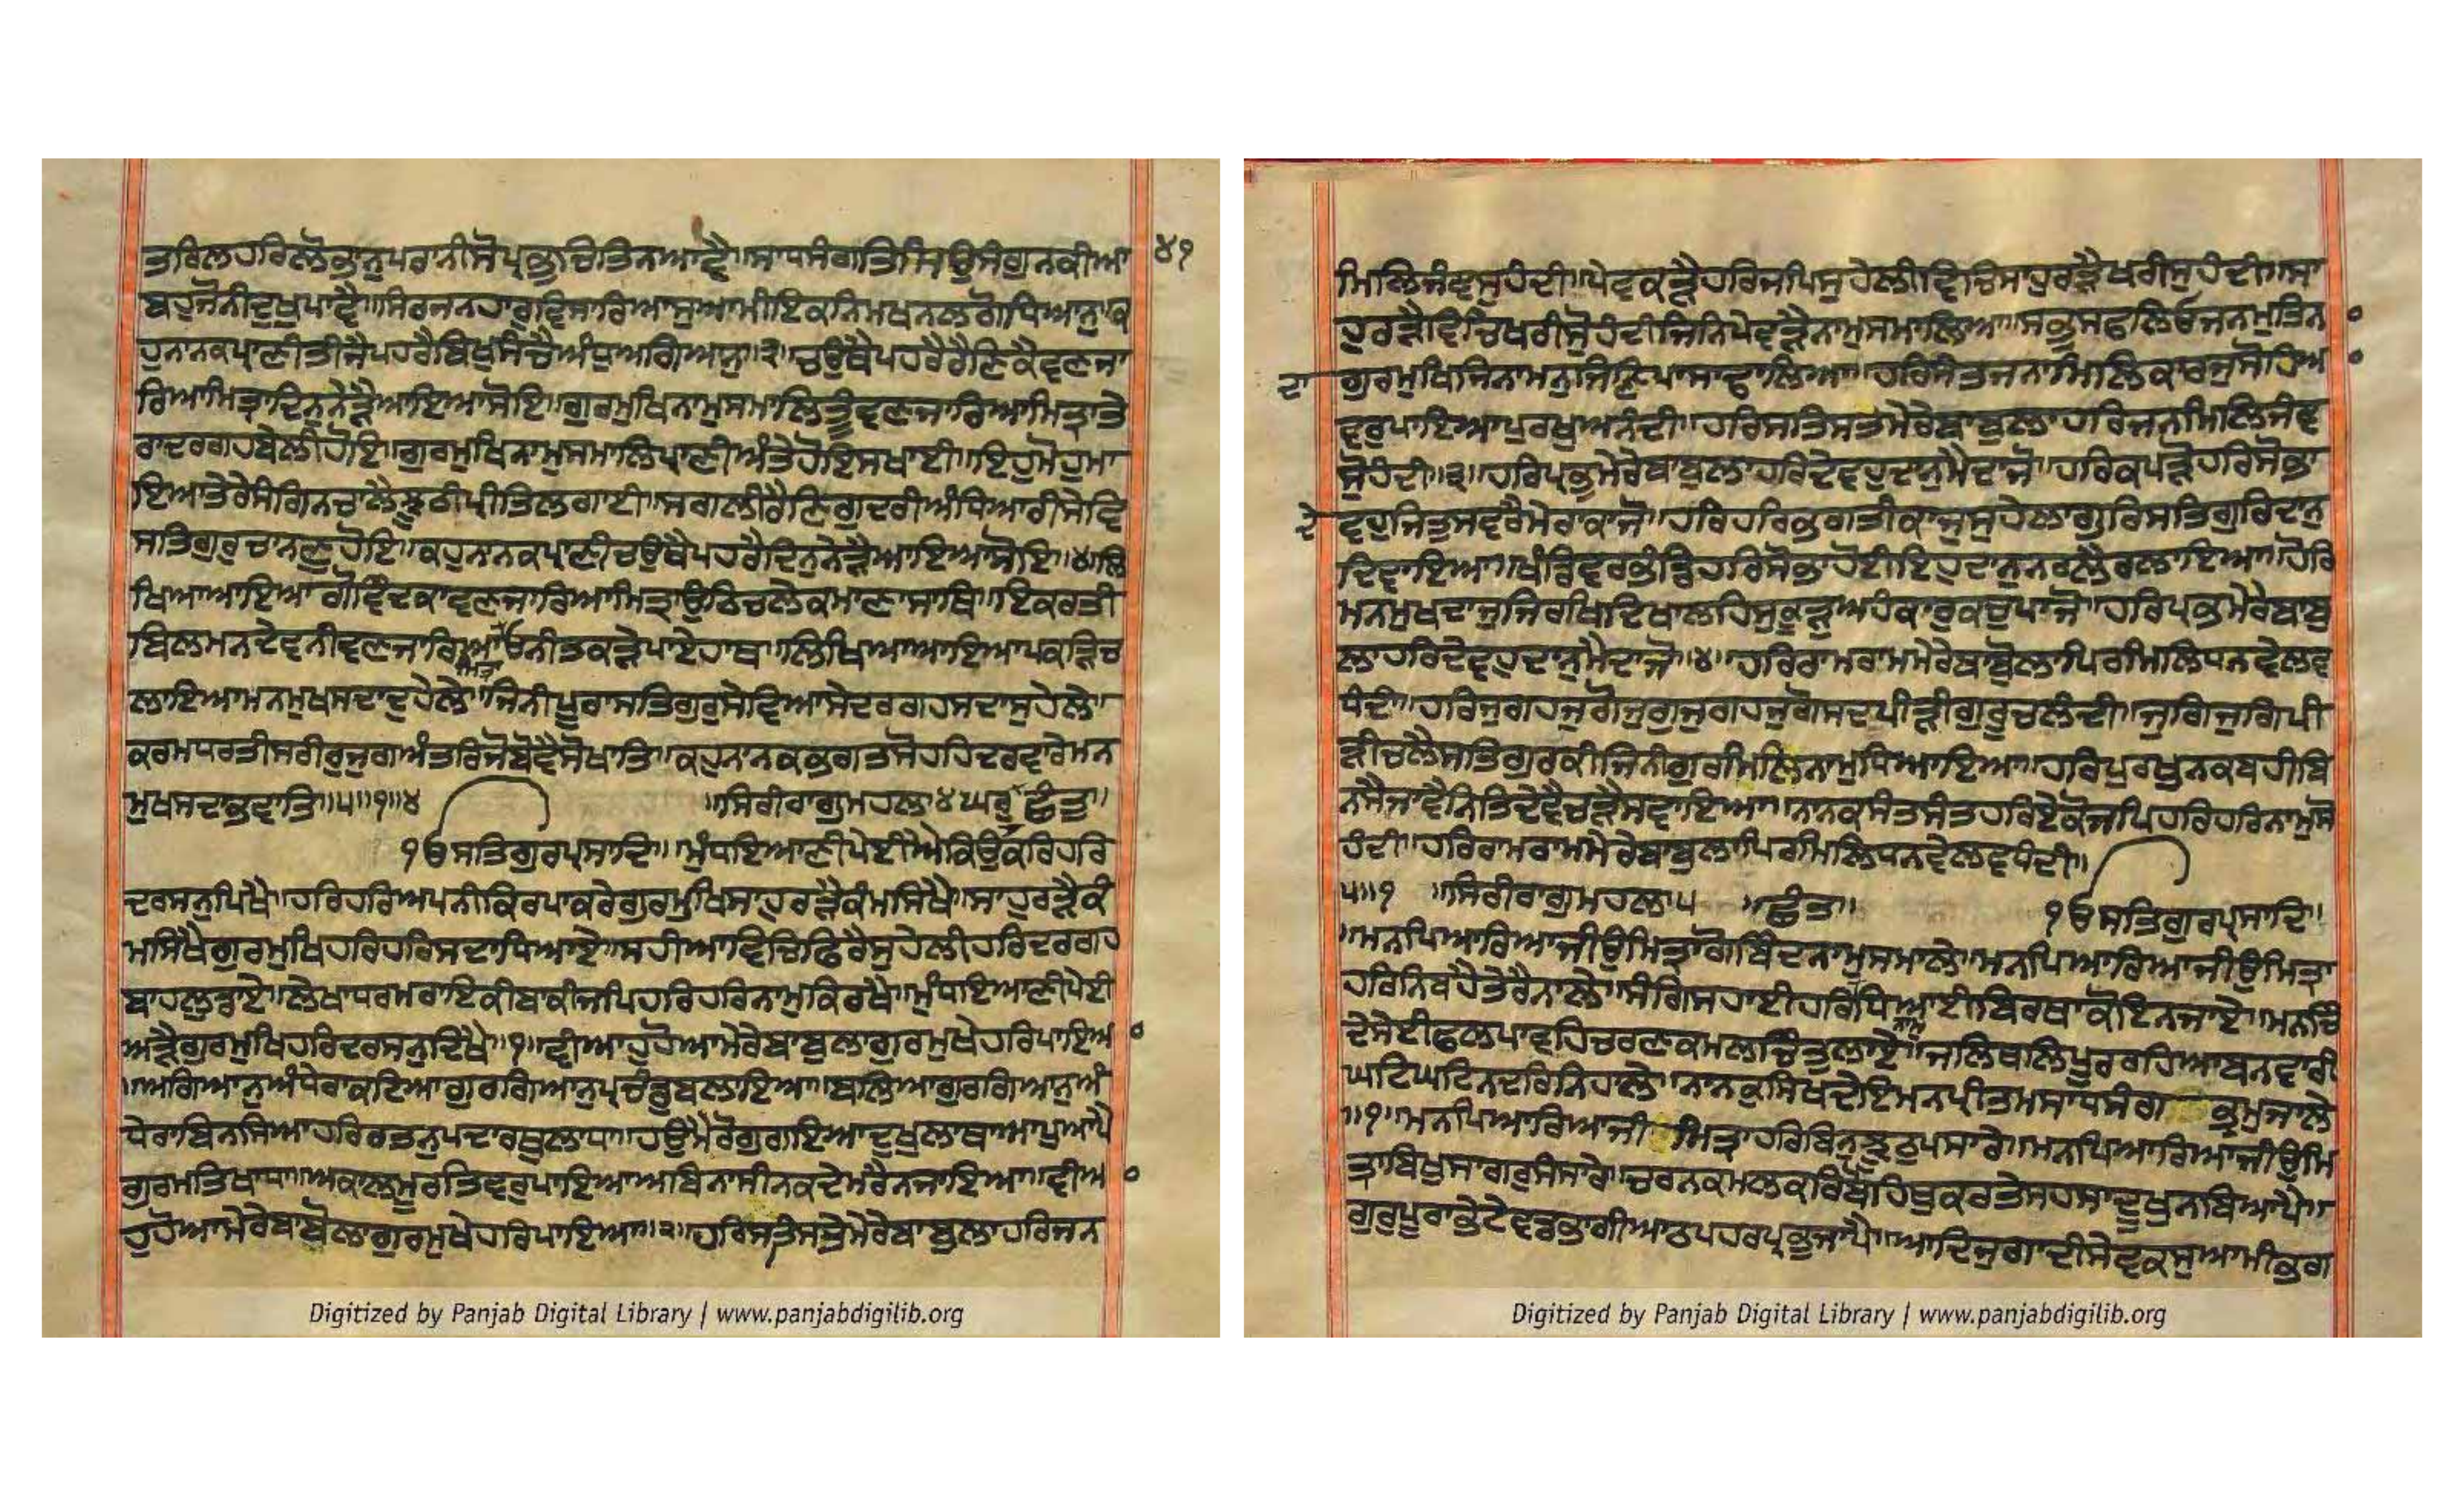 ਤਰਿਲਹਰਿਲੋਕਾਨੁਪਰਨੀਸੋਪ੍ਰਭੁਚਿਤਿਨਆਵੈ॥ਸਾਧਸੰਗਤਿਸਿਉਸੰਗੁਨਕੀਆ ੪੧
ਬਹੁਜੋਨੀਦੁਖੁਪਾਵੈ॥ਸਿਰਜਨਹਾਰੁਵਿਸਾਰਿਆਸੁਆਮੀਇਕਨਿਮਖਨਲਗੋਧਿਆਨੁ॥ਕ
ਹੁਨਾਨਕਪ੍ਰਾਣੀਤੀਜੈਪਹਰੈਬਿਖੁਸੰਚੈਅੰਧੁਅਗਿਆਨੁ॥੩॥ਚਉਥੈਪਹਰੈਰੈਣਿਕੈਵਣਜਾ
ਰਿਆਮਿਤ੍ਰਾਦਿਨੁਨੇੜੈਆਇਆਸੋਇ॥ਗੁਰਮੁਖਿਨਾਮੁਸਮਾਲਿਤੂੰਵਣਜਾਰਿਆਮਿਤ੍ਰਾਤੇ
ਰਾਦਰਗਹਬੇਲੀਹੋਇ॥ਗੁਰਮੁਖਿਨਾਮੁਸਮਾਲਿਪ੍ਰਾਣੀਅੰਤੇਹੋਇਸਖਾਈ॥ਇਹੁਮੋਹੁਮਾ
ਇਆਤੇਰੈਸੰਗਿਨਚਾਲੈਝੂਠੀਪ੍ਰੀਤਿਲਗਾਈ॥ਸਗਲੀਰੈਣਿਗੁਦਰੀਅੰਧਿਆਰੀਸੇਵਿ
ਸਤਿਗੁਰੁਚਾਨਣੁਹੋਇ॥ਕਹੁਨਾਨਕਪ੍ਰਾਣੀਚਉਥੈਪਹਰੈਦਿਨੁਨੇੜੈਆਇਆਸੋਇ॥੪॥ਲਿ
ਖਿਆਆਇਆਗੋਵਿੰਦਕਾਵਣਜਾਰਿਆਮਿਤ੍ਰਾਉਠਿਚਲੇਕਮਾਣਾਸਾਥਿ॥ਇਕਰਤੀ
ਬਿਲਮਨਦੇਵਨੀਵਣਜਾਰਿਆਮਿਤ੍ਰਾਓਨੀਤਕੜੇਪਾਏਹਾਥ॥ਲਿਖਿਆਆਇਆਪਕੜਿਚ
ਲਾਇਆਮਨਮੁਖਸਦਾਦੁਹੇਲੇ॥ਜਿਨੀਪੂਰਾਸਤਿਗੁਰੁਸੇਵਿਆਸੇਦਰਗਹਸਦਾਸੁਹੇਲੇ॥
ਕਰਮਧਰਤੀਸਰੀਰੁਜੁਗਅੰਤਰਿਜੋਬੋਵੈਸੋਖਾਤਿ॥ਕਹੁਨਾਨਕਭਗਤਸੋਹਹਿਦਰਵਾਰੇਮਨ
ਮੁਖਸਦਾਭਵਾਤਿ॥੫॥੧॥੪ ॥ਸਿਰੀਰਾਗੁਮਹਲਾ੪ਘਰੁ੨ਛੰਤ॥
ੴਸਤਿਗੁਰਪ੍ਰਸਾਦਿ॥ਮੁੰਧਇਆਣੀਪੇਈਅੜੈਕਿਉਕਰਿਹਰਿ
ਦਰਸਨੁਪਿਖੈ॥ਹਰਿਹਰਿਅਪਨੀਕਿਰਪਾਕਰੇਗੁਰਮੁਖਿਸਾਹੁਰੜੈਕੰਮਸਿਖੈ॥ਸਾਹੁਰੜੈਕੰ
ਮਸਿਖੈਗੁਰਮੁਖਿਹਰਿਹਰਿਸਦਾਧਿਆਏ॥ਸਹੀਆਵਿਚਿਫਿਰੈਸੁਹੇਲੀਹਰਿਦਰਗਹ
ਬਾਹਲੁਡਾਏ॥ਲੇਖਾਧਰਮਰਾਇਕੀਬਾਕੀਜਪਿਹਰਿਹਰਿਨਾਮੁਕਿਰਖੈ॥ਮੁੰਧਇਆਣੀਪੇਈ
ਅੜੈਗੁਰਮੁਖਿਹਰਿਦਰਸਨੁਦਿਖੈ॥੧॥ਵੀਆਹੁਹੋਆਮੇਰੇਬਾਬੁਲਾਗੁਰਮੁਖੇਹਰਿਪਾਇਆ ०
॥ਅਗਿਆਨੁਅੰਧੇਰਾਕਟਿਆਗੁਰਗਿਆਨੁਪ੍ਰਚੰਡੁਬਲਾਇਆ॥ਬਲਿਆਗੁਰਗਿਆਨੁਅੰ
ਧੇਰਾਬਿਨਸਿਆਹਰਿਰਤਨੁਪਦਾਰਥੁਲਾਧਾ॥ਹਉਮੈਰੋਗੁਗਇਆਦੁਖੁਲਾਥਾਆਪੁਆਪੈ
ਗੁਰਮਤਿਖਾਧਾ॥ਅਕਾਲਮੂਰਤਿਵਰੁਪਾਇਆਅਬਿਨਾਸੀਨਕਦੇਮਰੈਨਜਾਇਆ॥ਵੀਆ ०
ਹੁਹੋਆਮੇਰੇਬਾਬੋਲਾਗੁਰਮੁਖੇਹਰਿਪਾਇਆ॥੨॥ਹਰਿਸਤਿਸਤੇਮੇਰੇਬਾਬੁਲਾਹਰਿਜਨ
ਮਿਲਿਜੰਞਸੁਹੰਦੀ॥ਪੇਵਕੜੈਹਰਿਜਪਿਸੁਹੇਲੀਵਿਚਿਸਾਹੁਰੜੈਖਰੀਸੁਹੰਦੀ॥ਸਾ
ਹੁਰੜੈਵਿਚਿਖਰੀਸੋਹੰਦੀਜਿਨਿਪੇਵਕੜੈਨਾਮੁਸਮਾਲਿਆ॥ਸਭੁਸਫਲਿਓਜਨਮੁਤਿਨਾ ०
ਦਾ ਗੁਰਮੁਖਿਜਿਨਾਮਨੁਜਿਣਿਪਾਸਾਢਾਲਿਆ॥ਹਰਿਸੰਤਜਨਾਮਿਲਿਕਾਰਜੁਸੋਹਿਆ ०
ਵਰੁਪਾਇਆਪੁਰਖੁਅਨੰਦੀ॥ਹਰਿਸਤਿਸਤਿਮੇਰੇਬਾਬੁਲਾਹਰਿਜਨਮਿਲਿਜੰਞ
ਸੋੁਹੰਦੀ॥੩॥ਹਰਿਪ੍ਰਭੁਮੇਰੇਬਾਬੁਲਾਹਰਿਦੇਵਹੁਦਾਨੁਮੈਦਾਜੋ॥ਹਰਿਕਪੜੋਹਰਿਸੋਭਾ
ਦੇ ਵਹੁਜਿਤੁਸਵਰੈਮੇਰਾਕਾਜੋ॥ਹਰਿਹਰਿਭਗਤੀਕਾਜੁਸੁਹੇਲਾਗੁਰਿਸਤਿਗੁਰਿਦਾਨੁ
ਦਿਵਾਇਆ॥ਖੰਡਿਵਰਭੰਡਿਹਰਿਸੋਭਾਹੋਈਇਹੁਦਾਨੁਨਰਲੈਰਲਾਇਆ॥ਹੋਰਿ
ਮਨਮੁਖਦਾਜੁਜਿਰਖਿਦਿਖਾਲਹਿਸੁਕੂੜੁਅਹੰਕਾਰੁਕਚੁਪਾਜੋ॥ਹਰਿਪ੍ਰਭਮੇਰੇਬਾਬੁ
ਲਾਹਰਿਦੇਵਹੁਦਾਨੁਮੈਦਾਜੋ॥੪॥ਹਰਿਰਾਮਰਾਮਮੇਰੇਬਾਬੋਲਾਪਿਰਮਿਲਿਧਨਵੇਲਵ
ਧੰਦੀ॥ਹਰਿਜੁਗਹਜੁਗੋਜੁਗੁਜੁਗਹਜੁਗੋਸਦਪੀੜੀਗੁਰੂਚਲੰਦੀ॥ਜੁਗਿਜੁਗਿਪੀ
ੜੀਚਲੈਸਤਿਗੁਰਕੀਜਿਨੀਗੁਰਮਿਲਿਨਾਮੁਧਿਆਇਆ॥ਹਰਿਪੁਰਖੁਨਕਬਹੀਬਿ
ਨਸੈਜਾਵੈਨਿਤਿਦੇਵੈਚੜੈਸਵਾਇਆ॥ਨਾਨਕਸੰਤਸੰਤਹਰਿਏਕੋਜਪਿਹਰਿਹਰਿਨਾਮੁਸੋ
ਹੰਦੀ॥ਹਰਿਰਾਮਰਾਮਮੇਰੇਬਾਬੁਲਾਪਿਰਮਿਲਿਧਨਵੇਲਵਧੰਦੀ॥
੫॥੧ ॥ਸਿਰੀਰਾਗੁਮਹਲਾ੫ ॥ਛੰਤ॥ ੴਸਤਿਗੁਰਪ੍ਰਸਾਦਿ॥
॥ਮਨਪਿਆਰਿਆਜੀਉਮਿਤ੍ਰਾਗੋਬਿੰਦਨਾਮੁਸਮਾਲੇ॥ਮਨਪਿਆਰਿਆਜੀਉਮਿਤ੍ਰਾ
ਹਰਿਨਿਬਹੈਤੇਰੈਨਾਲੇ॥ਸੰਗਿਸਹਾਈਹਰਿਨਾਮੁਧਿਆਈਬਿਰਥਾਕੋਇਨਜਾਏ॥ਮਨਚਿੰ
ਦੇਸੇਈਫਲਪਾਵਹਿਚਰਣਕਮਲਚਿਤੁਲਾਏ॥ਜਲਿਥਲਿਪੂਰਰਹਿਆਬਨਵਾਰੀ
ਘਟਿਘਟਿਨਦਰਿਨਿਹਾਲੇ॥ਨਾਨਕੁਸਿਖਦੇਇਮਨਪ੍ਰੀਤਮਸਾਧਸੰਗਿ ਭ੍ਰਮੁਜਾਲੇ
॥੧॥ਮਨਪਿਆਰਿਆਜੀ ਮਿਤ੍ਰਾਹਰਿਬਿਨੁਝੂਠੁਪਸਾਰੇ॥ਮਨਪਿਆਰਿਆਜੀਉਮਿ
ਤ੍ਰਾਬਿਖੁਸਾਗਰੁਸੰਸਾਰੇ॥ਚਰਨਕਮਲਕਰਿਬੋਹਿਥੁਕਰਤੇਸਹਸਾਦੂਖੁਨਬਿਆਪੈ॥
ਗੁਰੁਪੂਰਾਭੇਟੇਵਡਭਾਗੀਆਠਪਹਰਪ੍ਰਭੁਜਾਪੈ॥ਆਦਿਜੁਗਾਦੀਸੇਵਕਸੁਆਮੀਭਗ
Digitized by Panjab Digital Library | www.panjabdigilib.org
Digitized by Panjab Digital Library | www.panjabdigilib.org